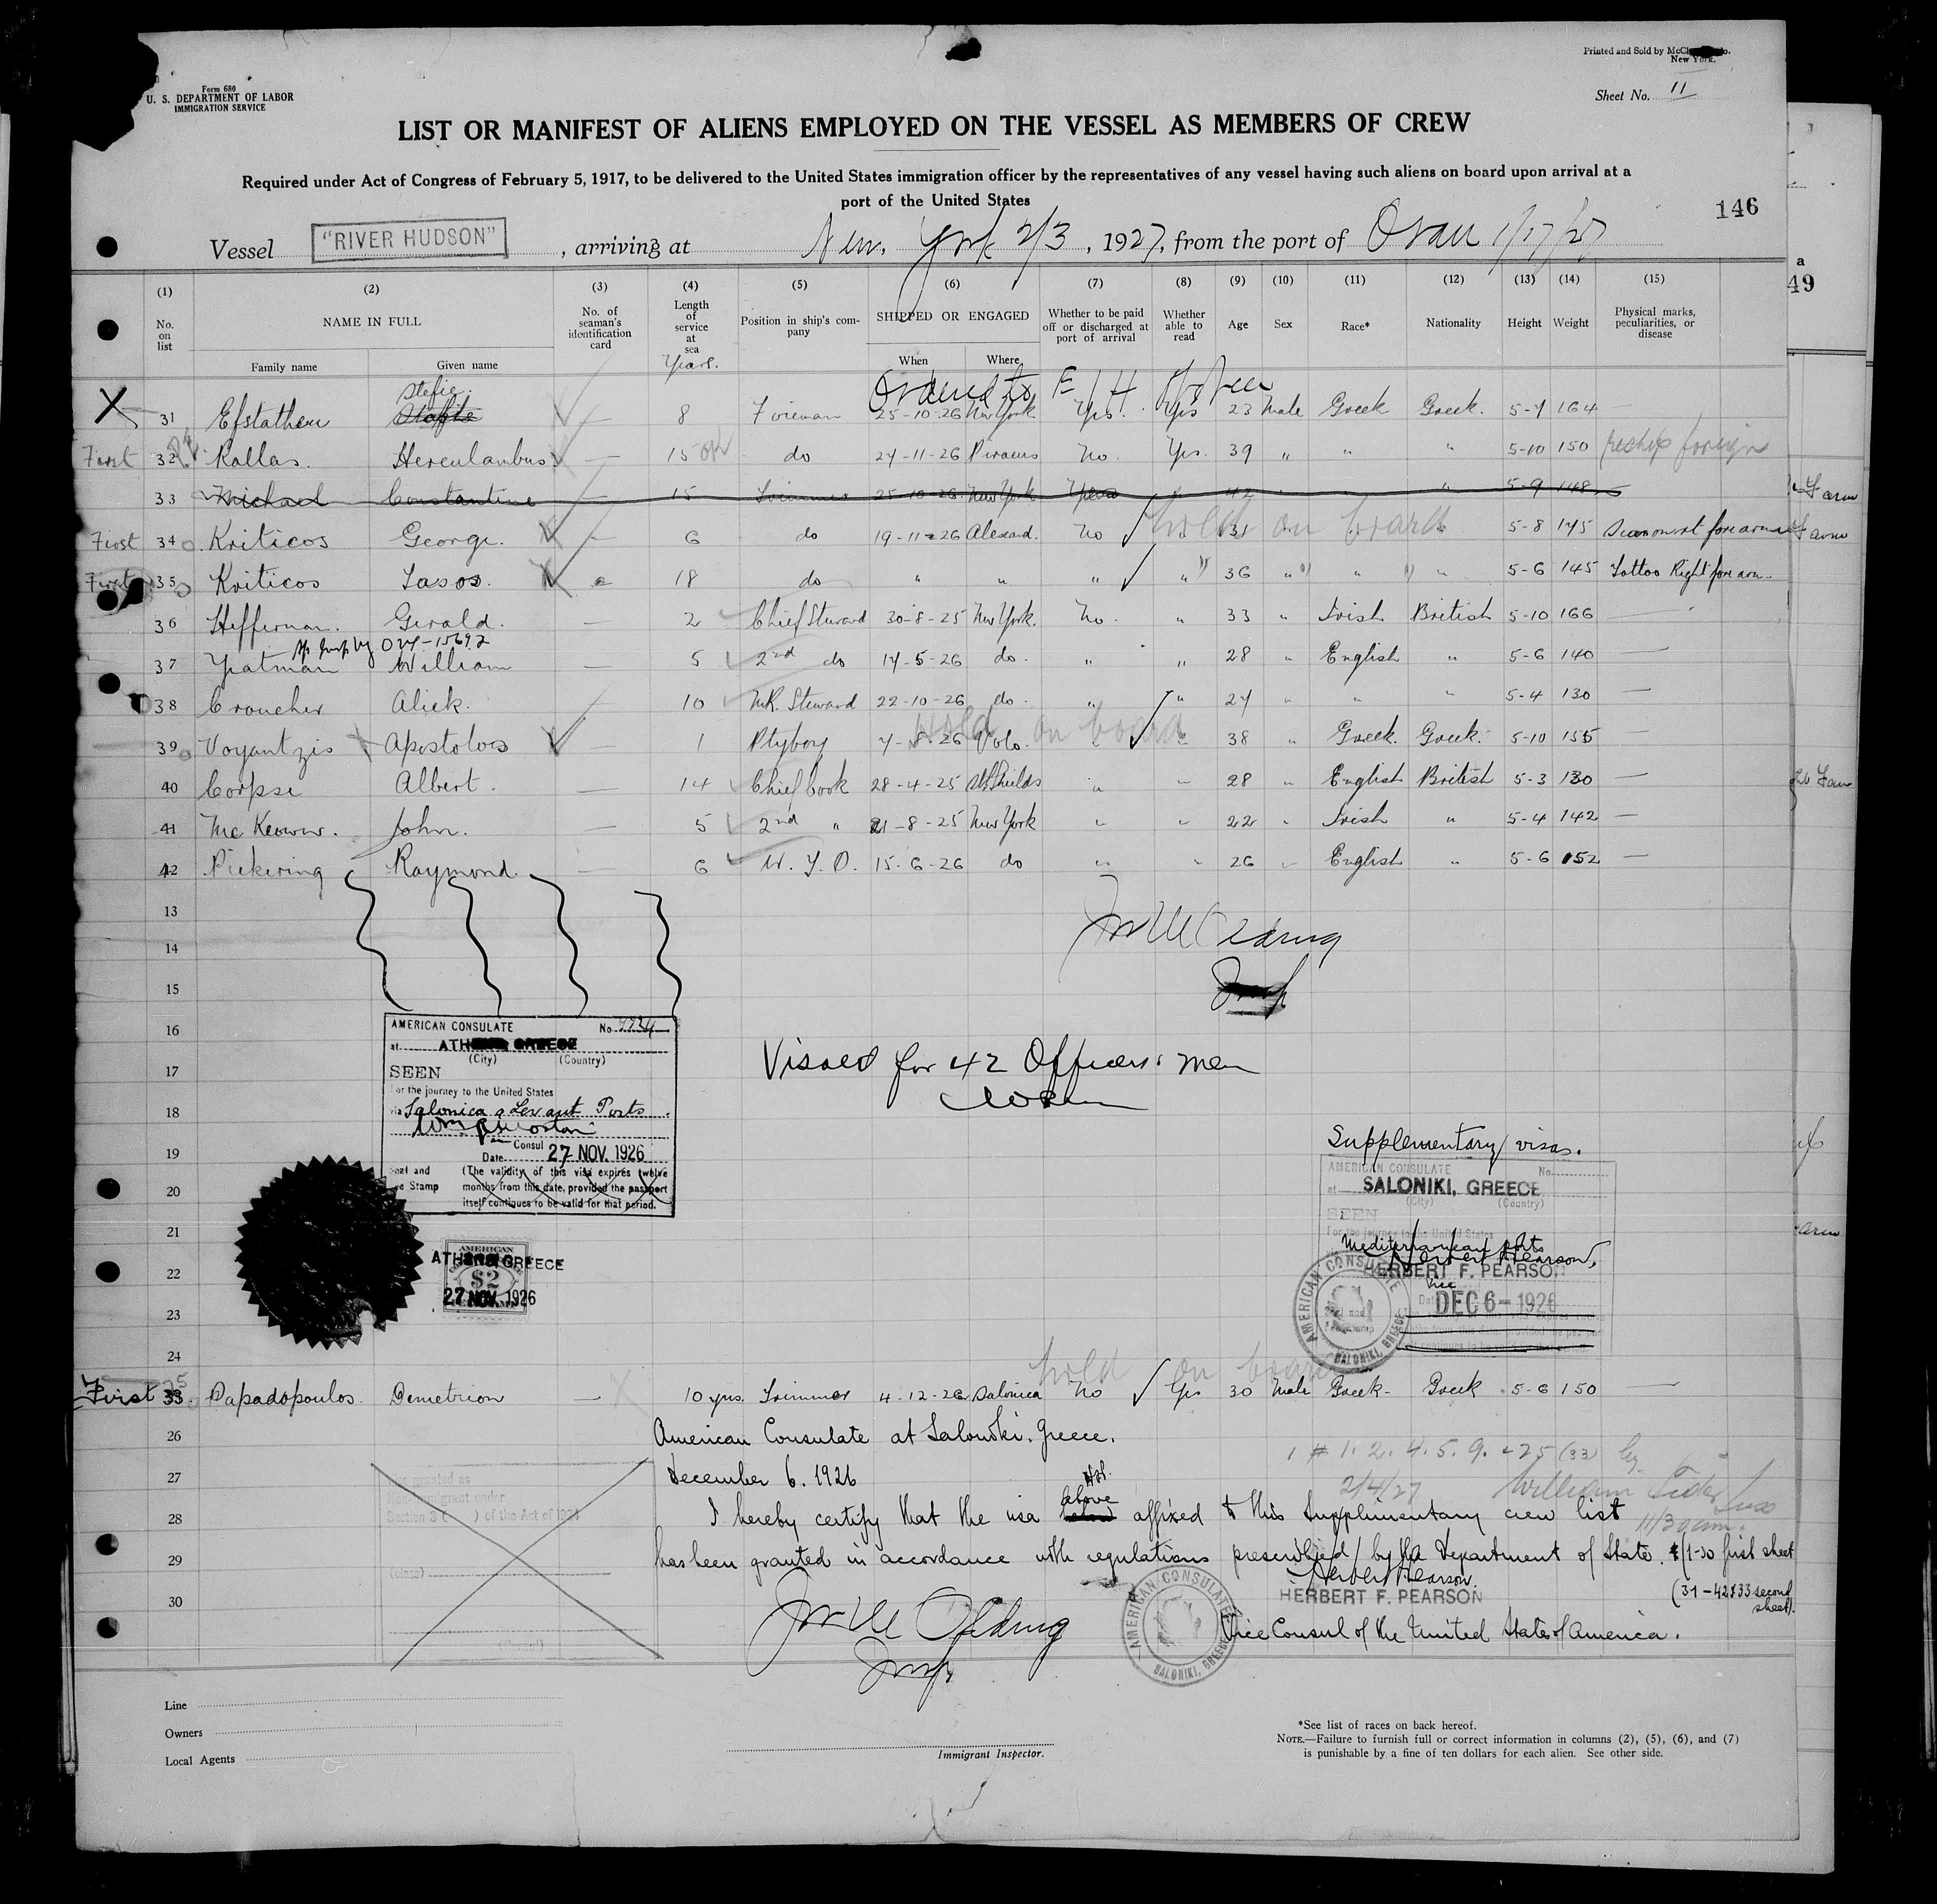 Printed and Sold by
New York.
Form 680
U. S. DEPARTMENT OF LABOR
IMMIGRATION SERVICE
Sheet No. 11
LIST OR MANIFEST OF ALIENS EMPLOYED ON THE VESSEL AS MEMBERS OF CREW
Required under Act of Congress of February 5, 1917, to be delivered to the United States immigration officer by the representatives of any vessel having such aliens on board upon arrival at a
port of the United States
146
Vessel "RIVER HUDSON", arriving at New York 2/3, 1927, from the port of Oran 1/17/27
a
49
(1) (2) (3) (4) (5) (6) (7) (8) (9) (10) (11) (12) (13) (14) (15)
No. on list NAME IN FULL No. of seaman's identification card Length of service at sea Position in ship's company SHIPPED OR ENGAGED Whether to be paid off or discharged at port of arrival Whether able to read Age Sex Race* Nationality Height Weight Physical marks, peculiarities, or disease
Family name Given name Years. When Where
Stefie.
X 31 Efstathiou 8 Fireman 25-10-26 New York Yes. Yes 23 Male Greek Greek. 5-7 164 —
First 32 Kallas. Herculanbus — 15 do 24-11-26 Piraeus No. Yes. 39 " " " 5-10 150 reship foreign
33 Michael Constantine — 15 Trimmer 25-10-26 New York 42 " 5-9 148
hold on board
First 34 Kriticos George. — 6 do 19-11-26 Alexand. No 31 5-8 145 forearm
First 35 Kriticos Tasos. 18 do " " " " 36 " " " 5-6 145 Tattoo Right forearm.
36 Heffernan. Gerald. — 2 Chief Steward 30-8-25 New York. No. " 33 " Irish British 5-10 166 —
37 Yeatman William — 5 2nd do 14-5-26 do. " " 28 " English " 5-6 140 —
38 Croucher Alick. 10 Steward 22-10-26 do. " " 24 " " " 5-4 130 —
hold on board
39 Voyantzis Apostolos — 1 Ptyboy 26 Volo. " " 38 " Greek. Greek. 5-10 155
40 Corpse Albert. — 14 Chief Cook 28-4-25 Shields " " 28 " English British 5-3 130 —
41 Mc Keown. John. — 5 2nd " 21-8-25 New York " " 22 " Irish " 5-4 142 —
42 Pickering Raymond. — 6 15-6-26 do " " 26 " English " 5-6 152 —
13
14
15
16
17
18
19
20
21
22
23
24
AMERICAN CONSULATE No.
at ATHENS GREECE
(City) (Country)
SEEN
For the journey to the United States
via Salonica & Levant Ports
Consul
Date 27 NOV. 1926
Seal and (The validity of this visa expires twelve
Fee Stamp months from this date, provided the passport
itself continues to be valid for that period.
Visaed for 42 Officers & men
ATHENS GREECE
AMERICAN
$2
27 NOV. 1926
Supplementary visa.
AMERICAN CONSULATE No.
at SALONIKI, GREECE
(City) (Country)
SEEN
For the journey to the United States
Mediterranean ports
Herbert F. Pearson,
HERBERT F. PEARSON
Vice
DEC 6 - 1926
AMERICAN CONSULATE
SALONIKI, GREECE
hold on board
First 33 Papadopoulos. Demetrion — 10 yrs. Trimmer 4-12-26 Salonica No Yes 30 Male Greek- Greek 5-6 150 —
26
27
28
29
30
American Consulate at Saloniki. Greece.
December 6. 1926
I hereby certify that the visa above affixed to this supplimentary crew list
has been granted in accordance with regulations prescribed by the Department of State. (1-30 first sheet
(31-42&33 second
sheet).
Herbert F. Pearson.
HERBERT F. PEARSON
Vice Consul of the United States of America.
# 1. 2. 4. 5. 9. 25 (33) by
2/4/27 William
granted as
Non-immigrant under
Section 3 ( ) of the Act of 1924
(class)
(Consul)
AMERICAN CONSULATE
SALONIKI, GREECE
Line
Owners
Local Agents
Immigrant Inspector.
*See list of races on back hereof.
NOTE.—Failure to furnish full or correct information in columns (2), (5), (6), and (7)
is punishable by a fine of ten dollars for each alien. See other side.